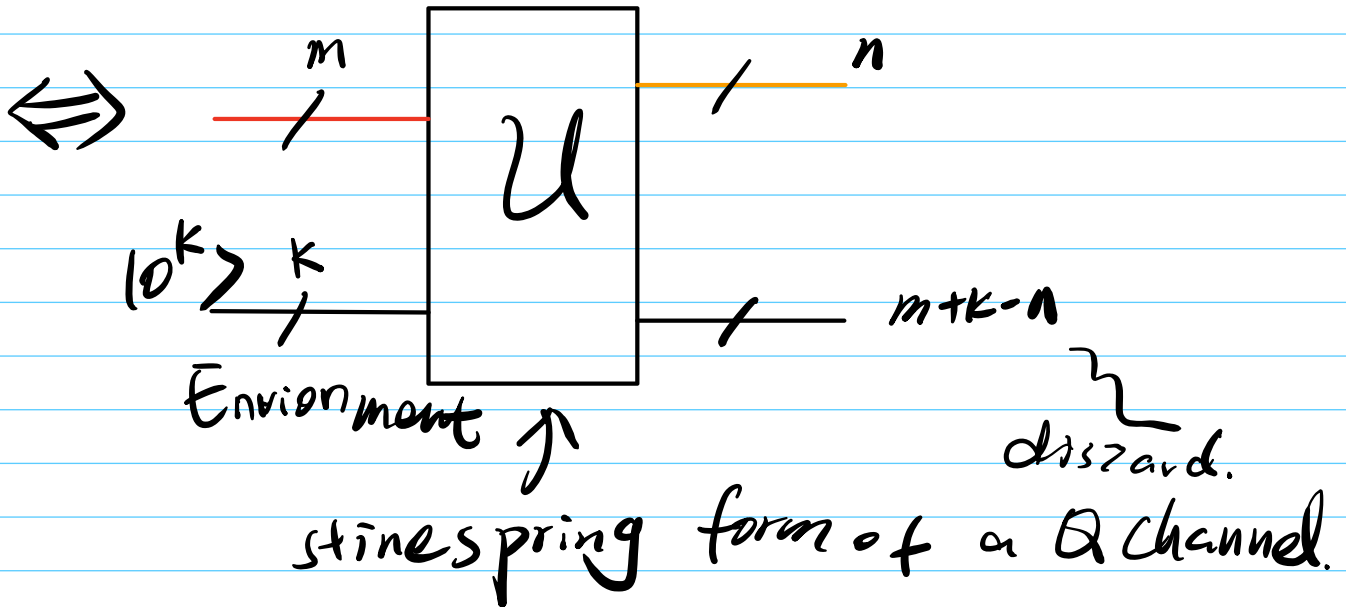 ⟺ m U n
|0^k> k m+k-n
Envionment discard.
stinespring form of a Q channel.